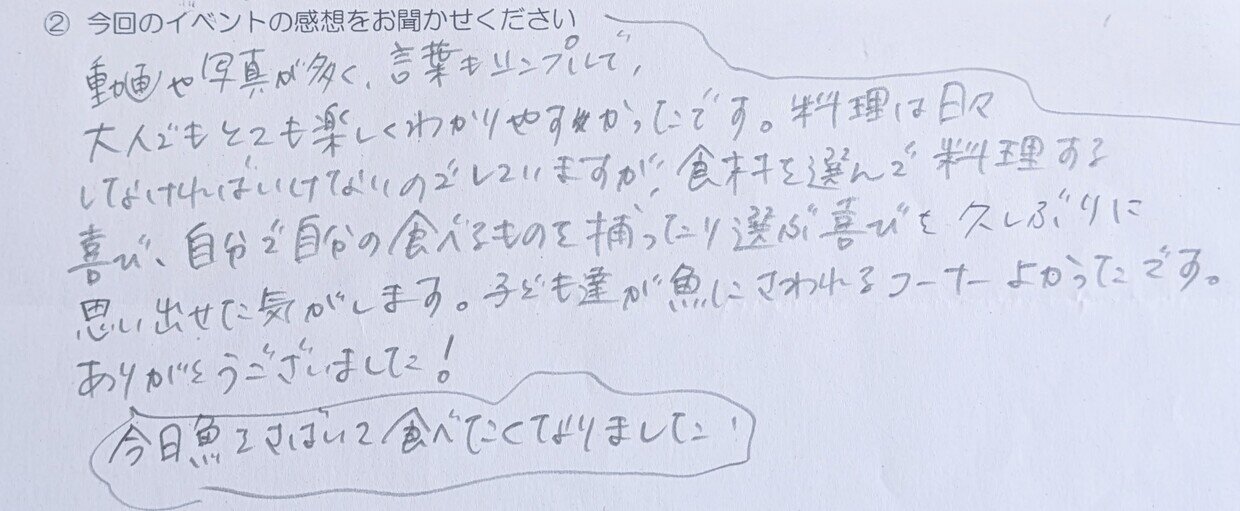 ② 今回のイベントの感想をお聞かせください
動画や写真が多く、言葉もシンプルで、
大人でもとても楽しくわかりやすかったです。料理は日々
しなければいけないのでしていますが、食材を選んで料理する
喜び、自分で自分の食べるものを捕ったり選ぶ喜びを久しぶりに
思い出せた気がします。子ども達が魚にさわれるコーナーよかったです。
ありがとうございました!
今日魚をさばいて食べたくなりました!